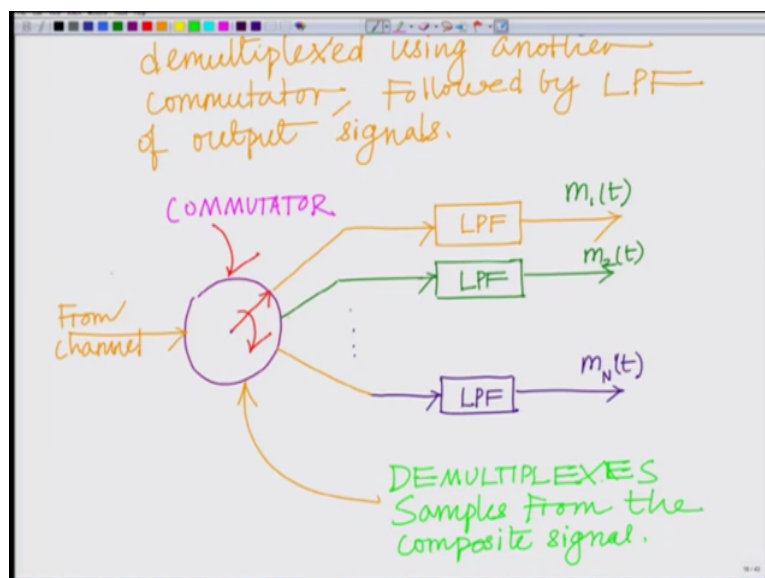 demultiplexed using another
commutator, followed by LPF
of output signals.
COMMUTATOR
LPF
m₁(t)
LPF
m₂(t)
From
channel
LPF
m_N(t)
DEMULTIPLEXES
Samples from the
composite signal.